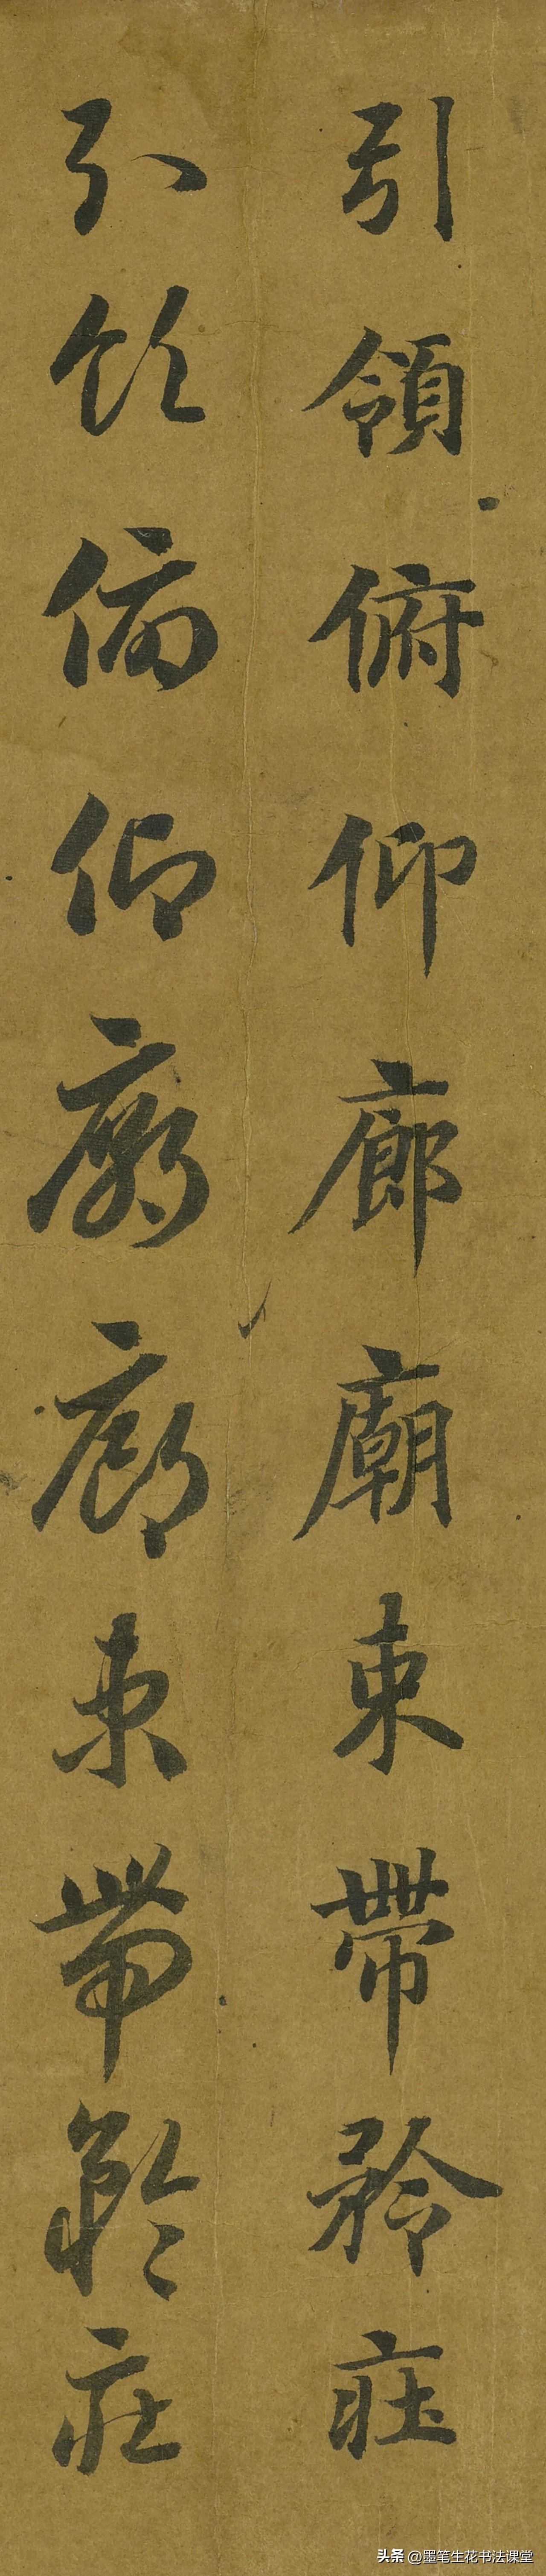 引領俯仰廊廟束帶矜莊
引領俯仰廟廊束帶矜莊
头条 @墨笔生花书法课堂